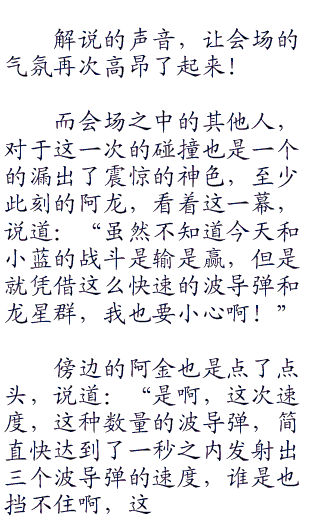 解说的声音，让会场的
气氛再次高昂了起来！
而会场之中的其他人，
对于这一次的碰撞也是一个
的漏出了震惊的神色，至少
此刻的阿龙，看着这一幕，
说道：“虽然不知道今天和
小蓝的战斗是输是赢，但是
就凭借这么快速的波导弹和
龙星群，我也要小心啊！”
傍边的阿金也是点了点
头，说道：“是啊，这次速
度，这种数量的波导弹，简
直快达到了一秒之内发射出
三个波导弹的速度，谁是也
挡不住啊，这